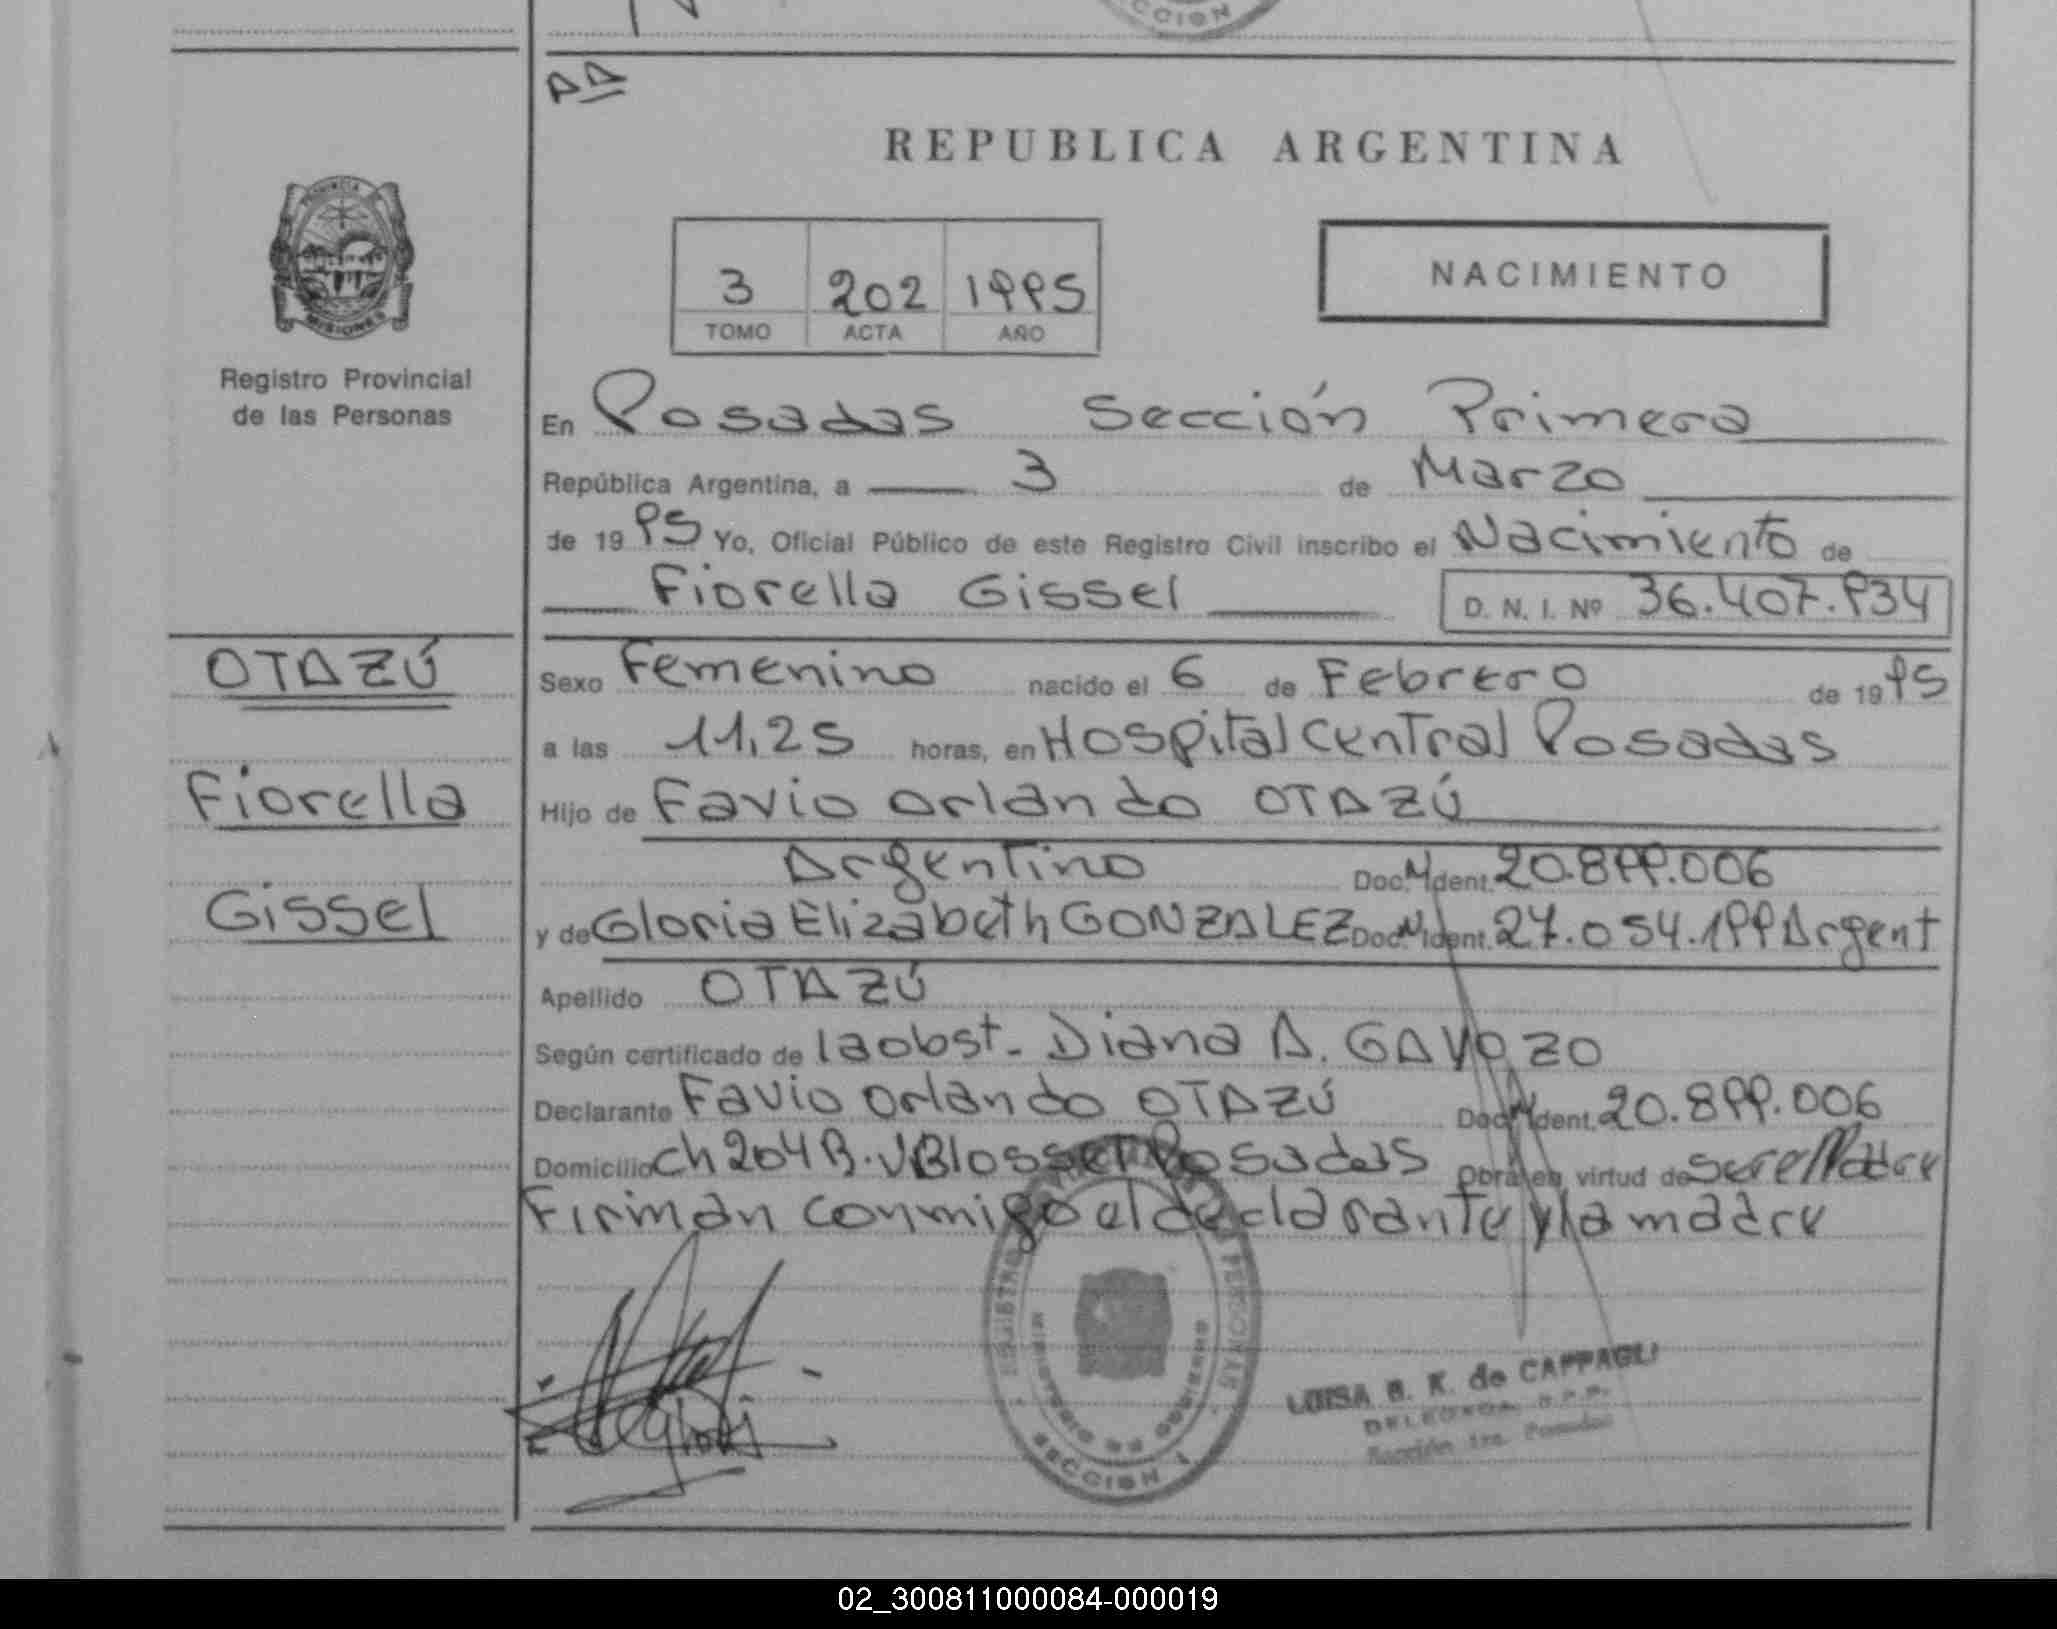 CCION
AA
REPUBLICA ARGENTINA
PROVINCIA
MISIONES
Registro Provincial
de las Personas
3 202 1995
TOMO ACTA AÑO
NACIMIENTO
En Posadas Sección Primera
República Argentina, a 3 de Marzo
de 1995 Yo, Oficial Público de este Registro Civil inscribo el Nacimiento de
Fiorella Gissel D. N. I. Nº 36.407.934
OTAZÚ
Fiorella
Gissel
Sexo Femenino nacido el 6 de Febrero de 1995
a las 11,25 horas, en Hospital Central Posadas
Hijo de Favio Orlando OTAZÚ
Argentino Doc. Ident. 20.899.006
y de Gloria Elizabeth GONZALEZ Doc. Ident. 27.054.199 Argent
Apellido OTAZÚ
Según certificado de la obst. Diana A. GAVOZO
Declarante Favio Orlando OTAZÚ Doc. Ident. 20.899.006
Domicilio Ch 204 B. V Blosset Posadas Obra en virtud de ser el Padre
Firman conmigo el declarante y la madre
REGISTRO PERSONAS
MINISTERIO DE GOBIERNO
SECCION 1
LUISA B. K. de CAPPAGLI
DELEGADA R.P.P.
Sección 1ra. Posadas
02_300811000084-000019